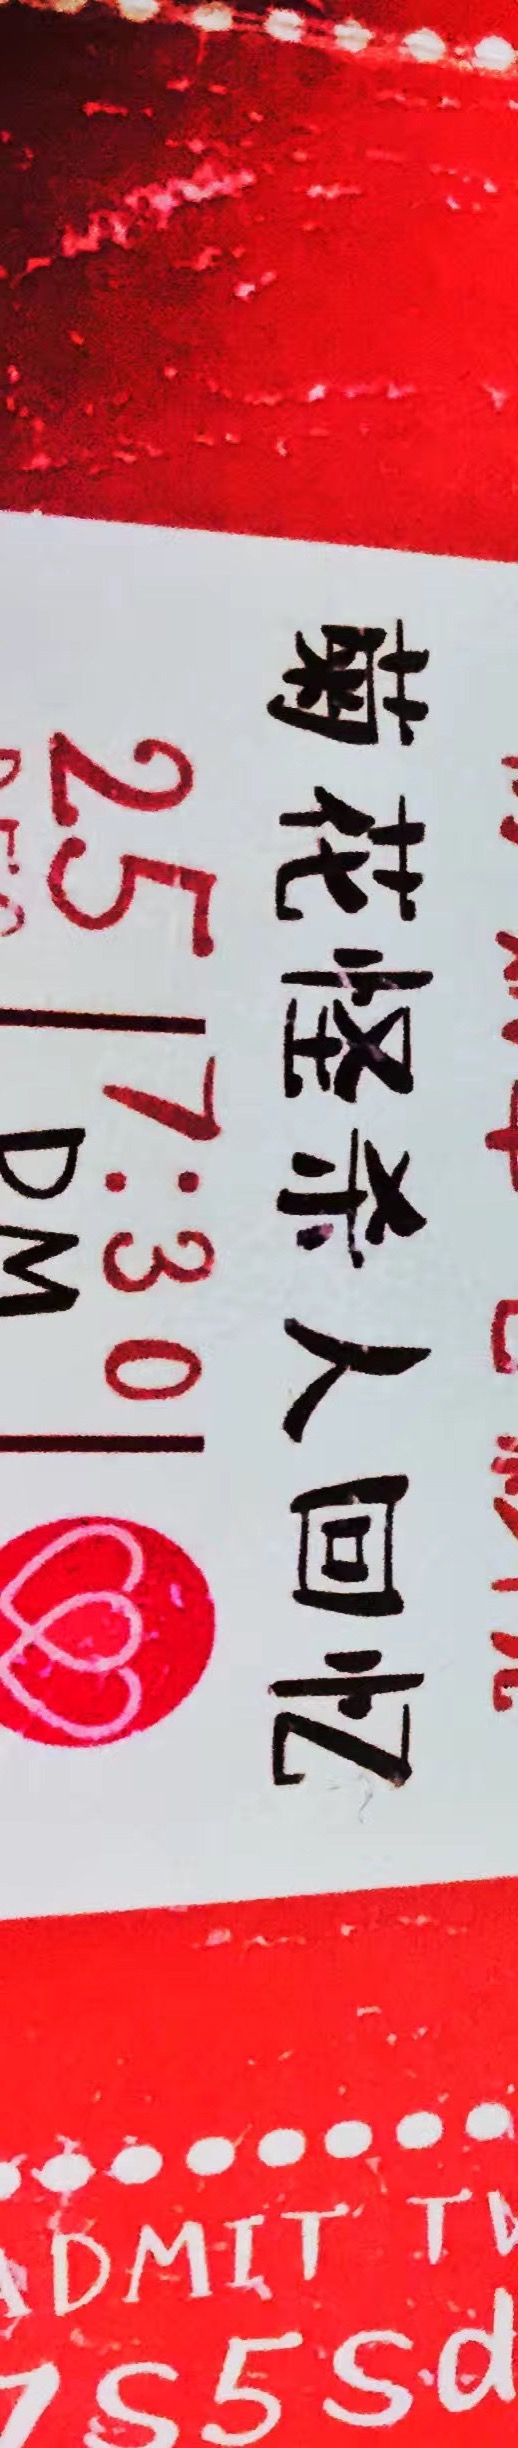 菊花怪杀人回忆
25|7:30|
DM
ADMIT TW
7S5Sd